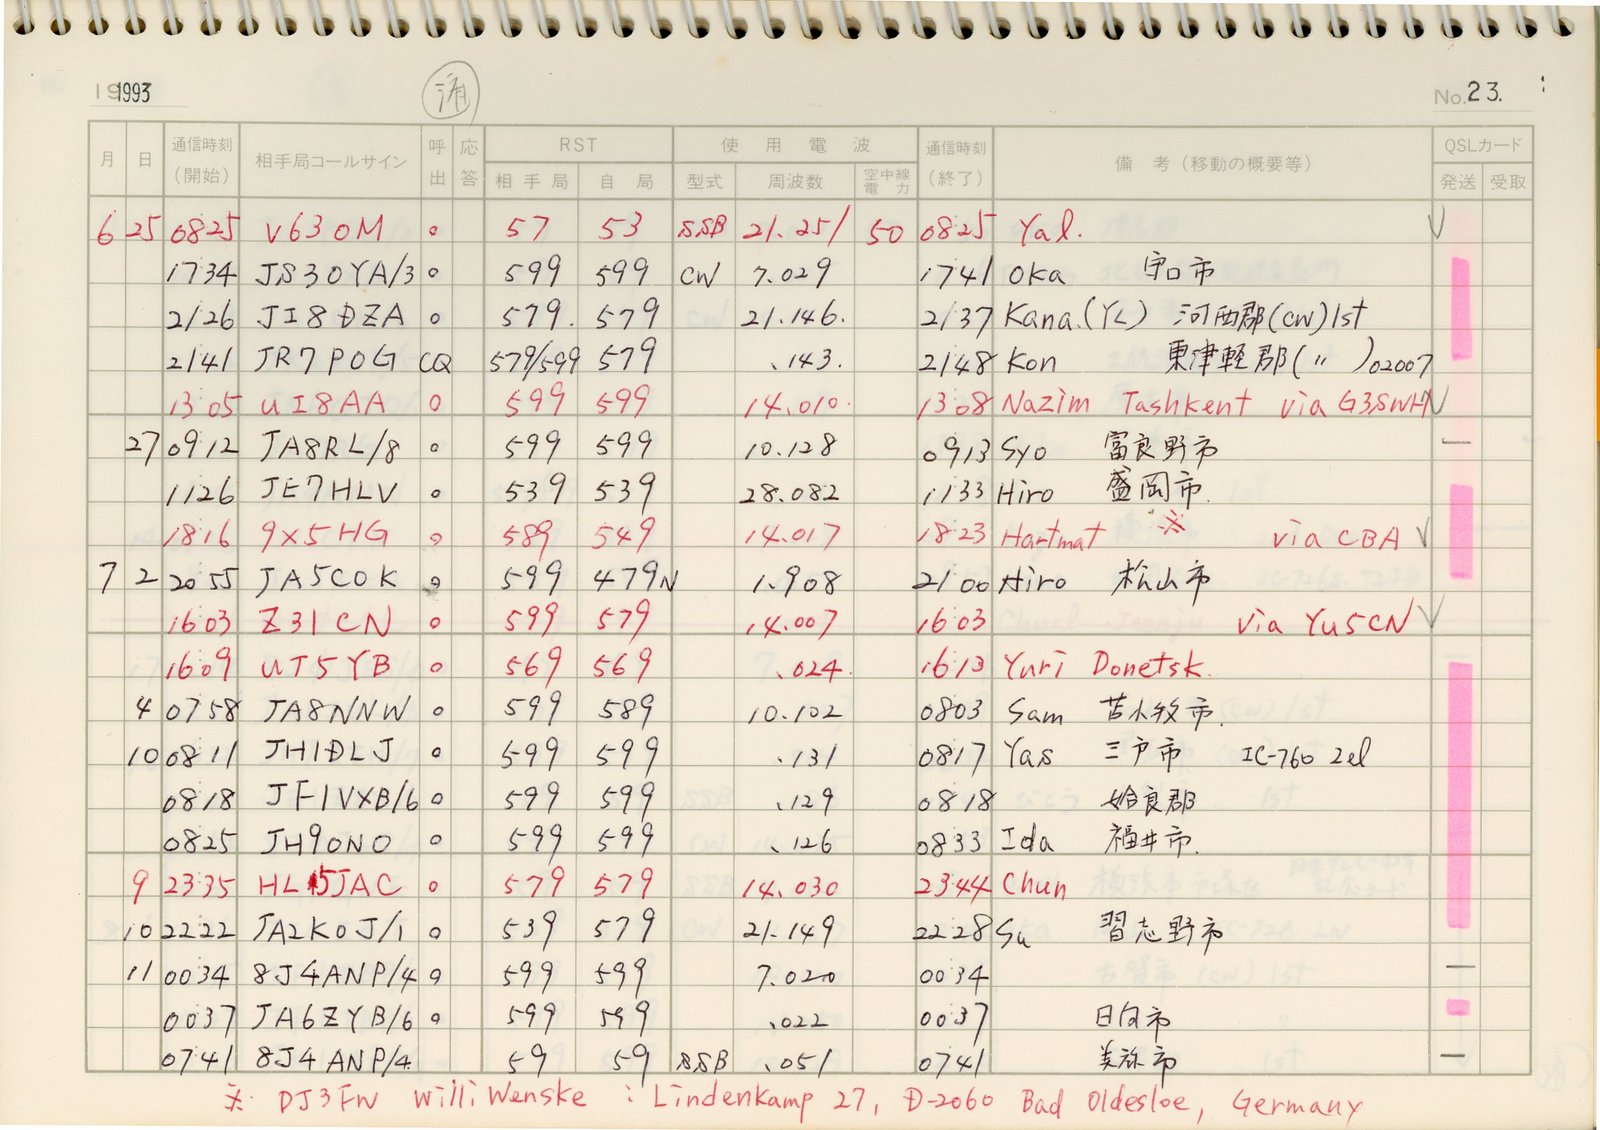 1993
済
No. 23.
月 日 通信時刻(開始) 相手局コールサイン 呼出 応答 RST 相手局 自局 使用電波 型式 周波数 空中線電力 通信時刻(終了) 備考(移動の概要等) QSLカード 発送 受取
6 25 0825 V63OM o 57 53 SSB 21.251 50 0825 Yal. ✓
1734 JS3OYA/3 o 599 599 CW 7.029 1741 Oka 守口市
2126 JI8DZA o 579. 579 21.146. 2137 Kana.(YL) 河西郡(CW)1st
2141 JR7POG CQ 579/599 579 .143. 2148 Kon 東津軽郡(〃)02007
1305 UI8AA o 599 599 14.010. 1308 Nazim Tashkent via G3SWH ✓
27 0912 JA8RL/8 o 599 599 10.128 0913 Syo 富良野市 —
1126 JE7HLV o 539 539 28.082 1133 Hiro 盛岡市.
1816 9X5HG o 589 549 14.017 1823 Hartmat ※ via CBA ✓
7 2 2055 JA5COK o 599 479N 1.908 2100 Hiro 松山市
1603 Z31CN o 599 579 14.007 1603 via YU5CN ✓
1609 UT5YB o 569 569 .024. 1613 Yuri Donetsk.
4 0758 JA8NNW o 599 589 10.102 0803 Sam 苫小牧市.
10 0811 JH1DLJ o 599 599 .131 0817 Yas 三戸市 IC-760 2el
0818 JF1VXB/6 o 599 599 .129 0818 姶良郡
0825 JH9ONO o 599 599 .126 0833 Ida 福井市.
9 2335 HL5JAC o 579 579 14.030 2344 Chun
10 2222 JA2KOJ/1 o 539 579 21.149 2228 Su 習志野市
11 0034 8J4ANP/4 o 599 599 7.020 0034 —
0037 JA6ZYB/6 o 599 599 .022 0037 日向市
0741 8J4ANP/4 59 59 SSB .051 0741 美祢市 —
※ DJ3FW Willi Wenske : Lindenkamp 27, D-2060 Bad Oldesloe, Germany